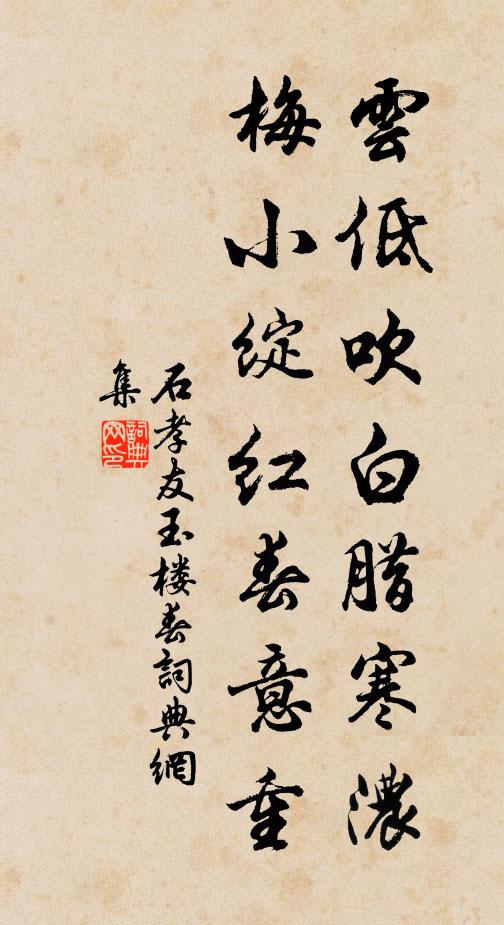 雲低吹白腊寒濃
梅小綻红春意重
石孝友玉楼春詞典網
集
詞典
网印